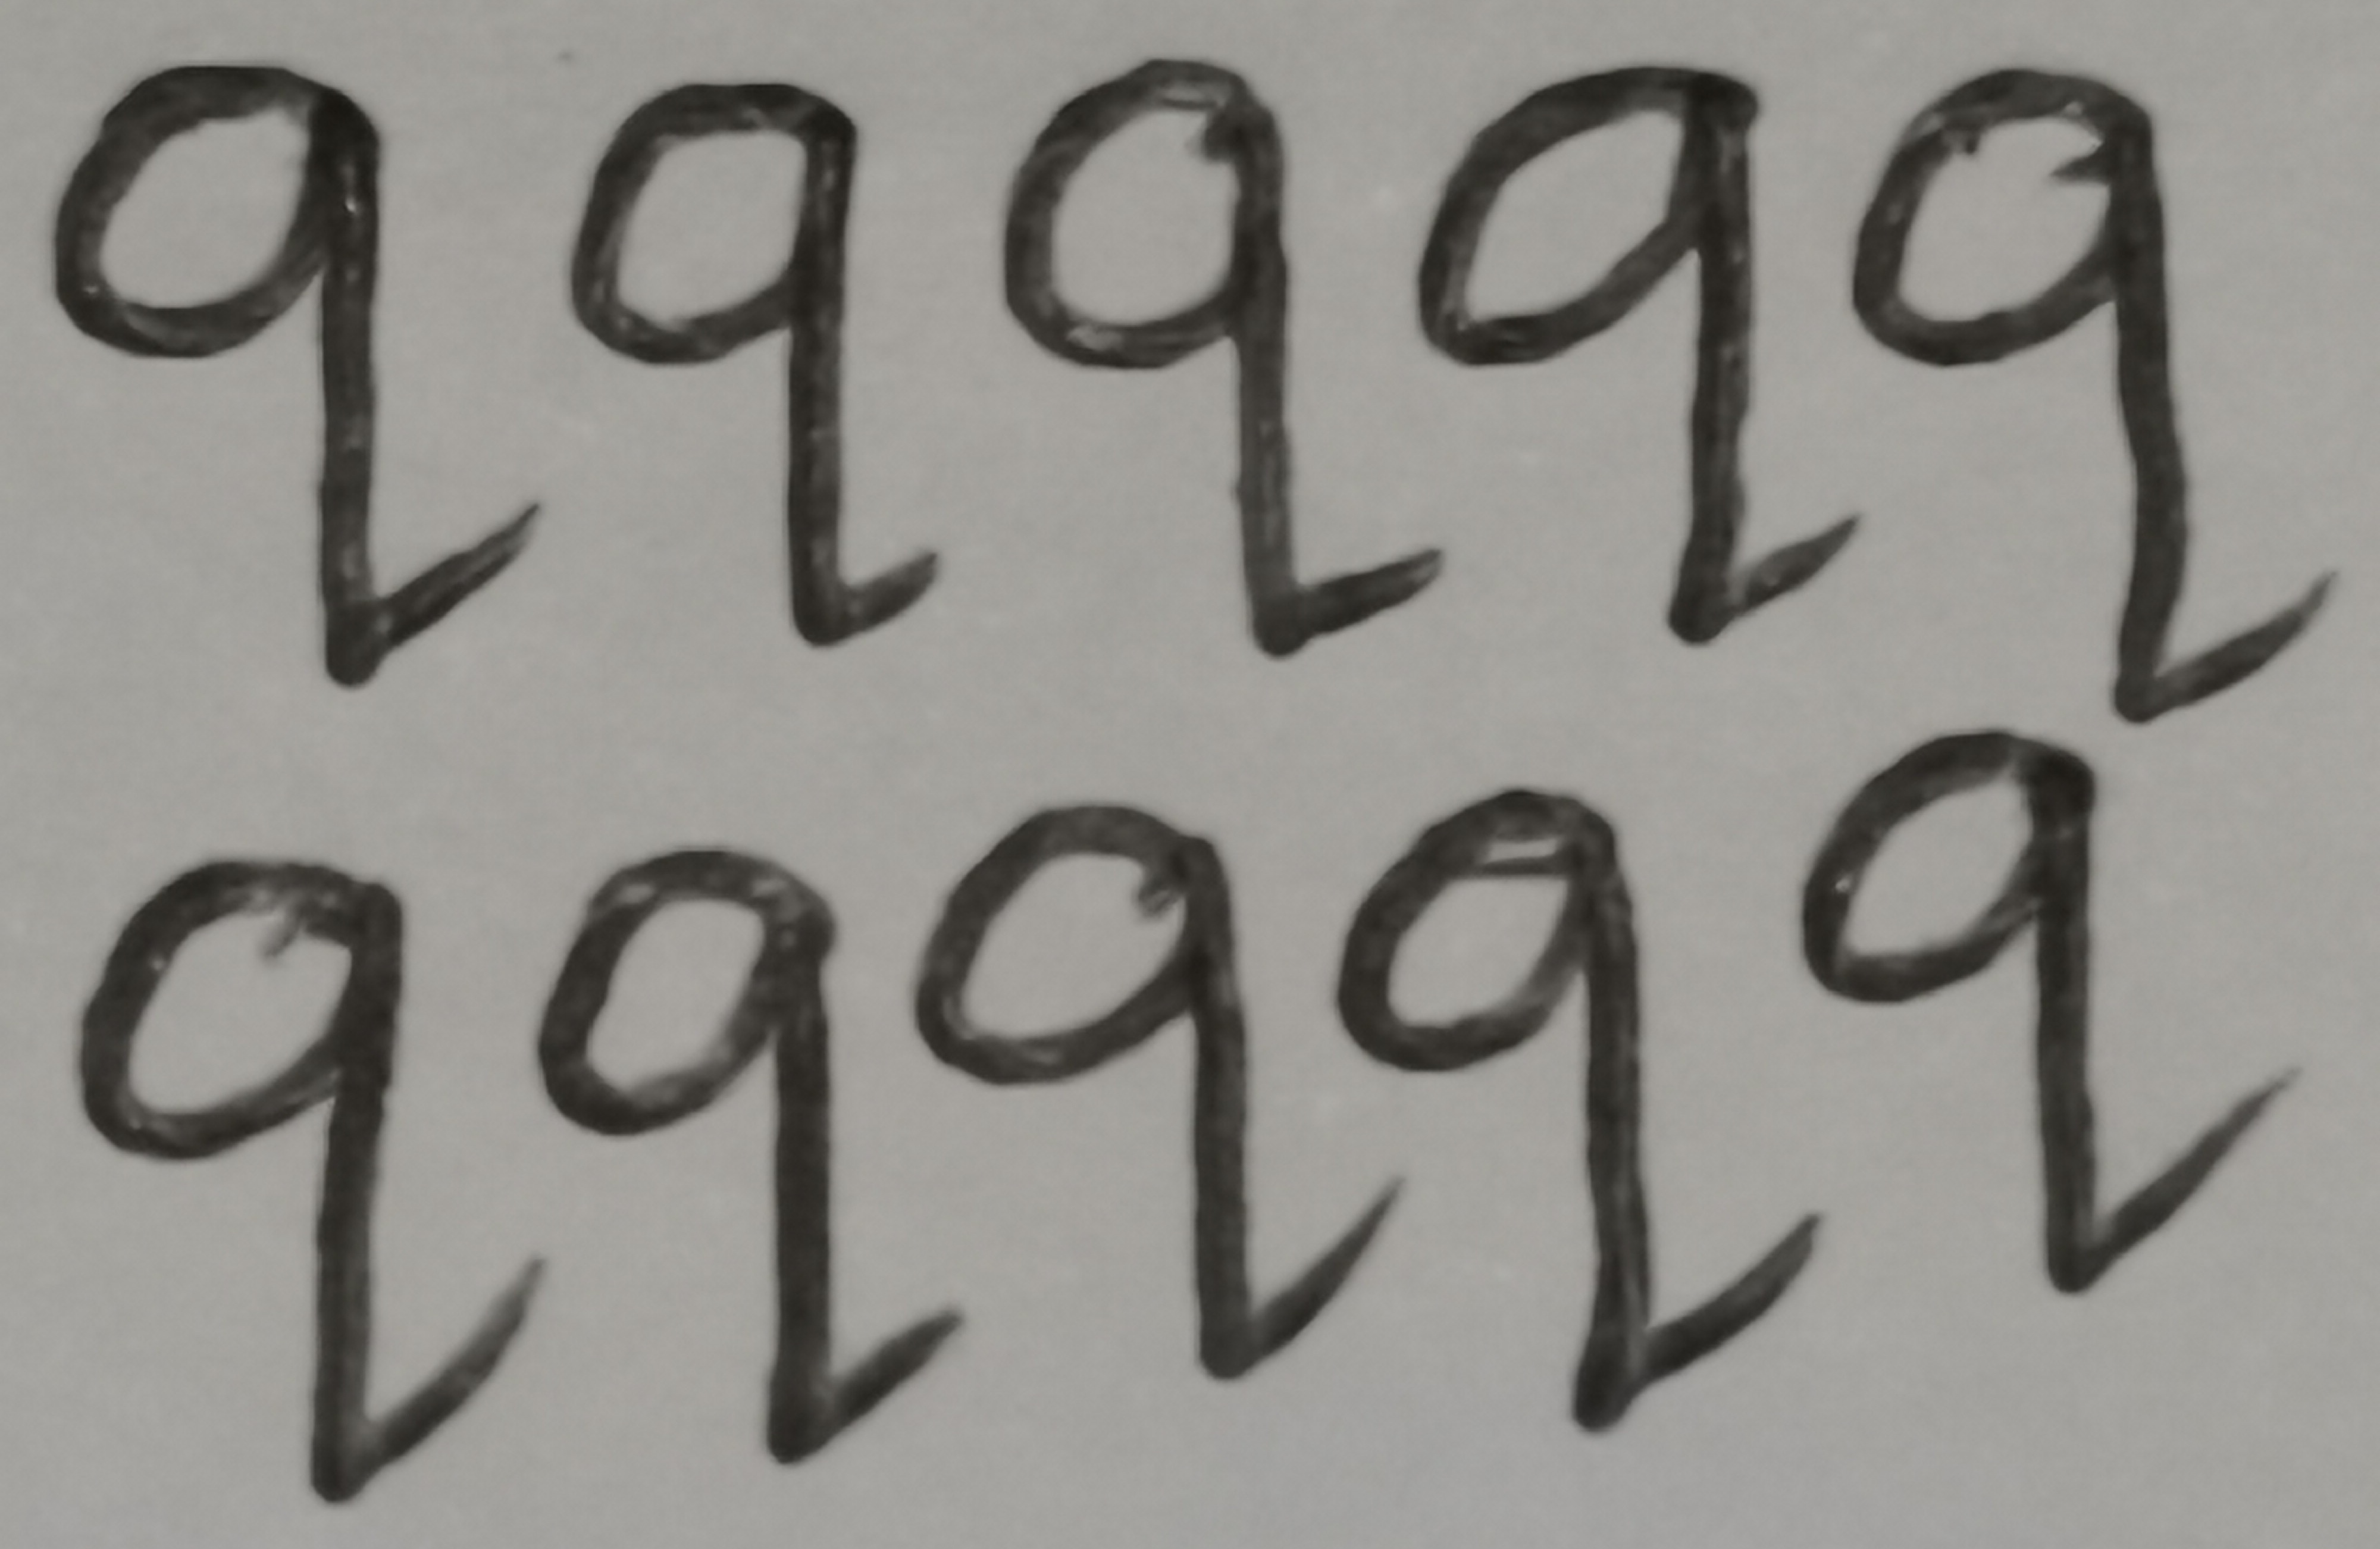 q q q q q
q q q q q